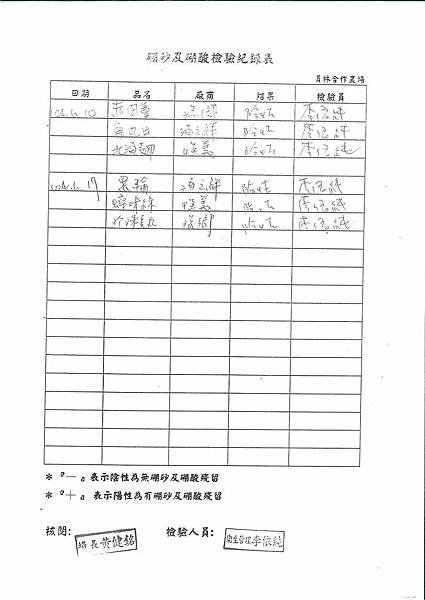 硼砂及硼酸檢驗紀錄表
員林合作農場
日期 品名 廠商 結果 檢驗員
104.6.10 陰性 李依純
魚丸片 海之鮮 陰性 李依純
北海翅 陰性 李依純
104.6.17 黑輪 海之鮮 陰性 李依純
蟳味絲 陰性 李依純
珍珠貢丸 陰性 李依純
* 「－」表示陰性為無硼砂及硼酸殘留
* 「＋」表示陽性為有硼砂及硼酸殘留
核閱： 場長黃健銘 檢驗人員： 衛生管理李依純